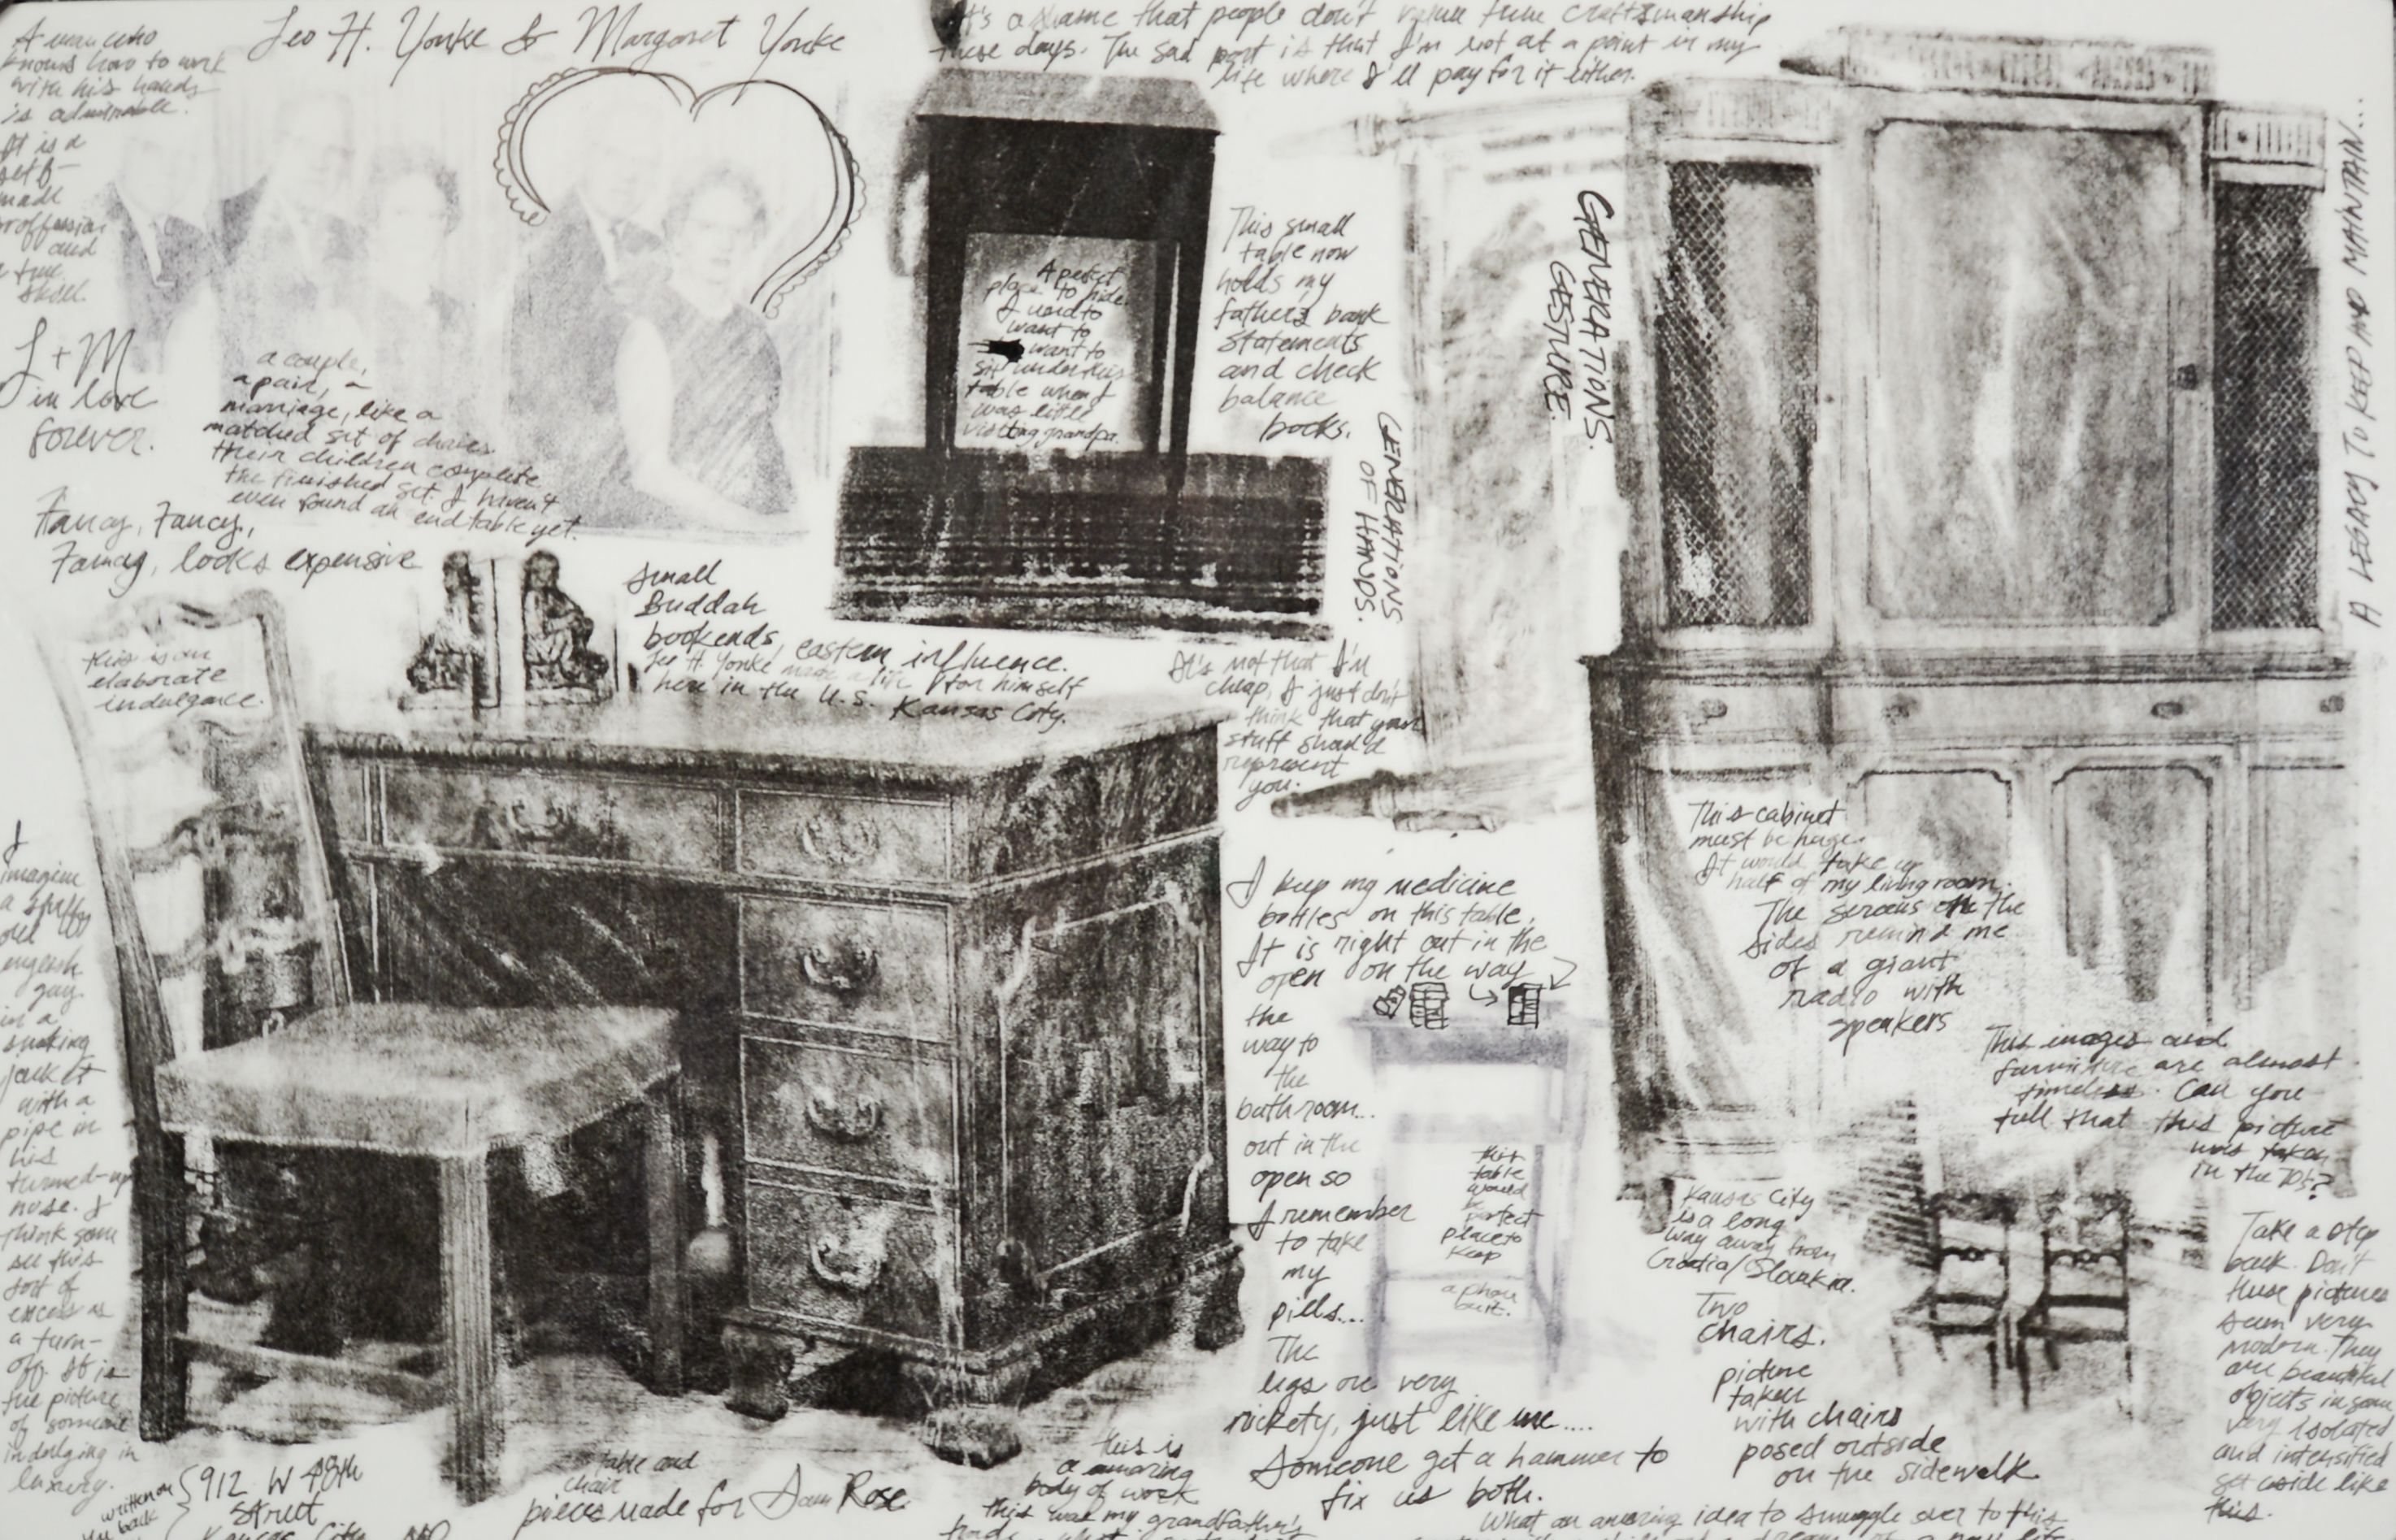 Leo H. Yonke & Margaret Yonke
A man who
knows how to work
with his hands
is admirable.
It is a
self-
made
and
a true
skill.
L + M
in love
forever.
a couple,
a pair, a
marriage, like a
matched set of chairs
their children complete
the finished set. I haven't
even found an end table yet.
Fancy, Fancy,
Fancy, looks expensive
this is an
elaborate
indulgance.
It's a shame that people don't value true craftsmanship
these days. The sad part is that I'm not at a point in my
life where I'll pay for it either.
A perfect
place to hide.
I used to
want to
want to
sit under this
table when I
was little
visiting grandpa.
This small
table now
holds my
father's bank
statements
and check
balance
books.
GENERATIONS.
GESTURE.
GENERATIONS
OF HANDS.
A LEGACY TO KEEP AND MAINTAIN...
Small
Buddah
bookends, eastern influence.
Leo H. Yonke made a life for himself
here in the U.S. Kansas City.
It's not that I'm
cheap, I just don't
think that your
stuff should
represent
you.
I
imagine
a stuffy
old
english
guy
in a
smoking
jacket
with a
pipe in
his
turned-up
nose. I
think some
see this
sort of
excess as
a turn-
off. It is
the picture
of someone
indulging in
luxury.
I keep my medicine
bottles on this table.
It is right out in the
open on the way
the
way to
the
bathroom...
out in the
open so
I remember
to take
my
pills...
The
legs are very
rickety, just like me....
Someone get a hammer to
fix us both.
this
table
would
be
perfect
place to
keep
a phone
This cabinet
must be huge.
It would take up
half of my living room.
The screens on the
sides remind me
of a giant
radio with
speakers
This images and
furniture are almost
timeless. Can you
tell that this picture
was taken
in the 70's?
Kansas City
is a long
way away from
Croatia/Slovakia.
Two
chairs.
picture
taken
with chairs
posed outside
on the sidewalk
Take a step
back. Don't
these pictures
seem very
modern. They
are beautiful
objects in some
very isolated
and intensified
set aside like
this.
written on
the back
912 W 48th
Street
Kansas City, MO
table and
chair
pieces made for Sam Rose
this is
a amazing
body of work
this was my grandfather's
What an amazing idea to smuggle over to this